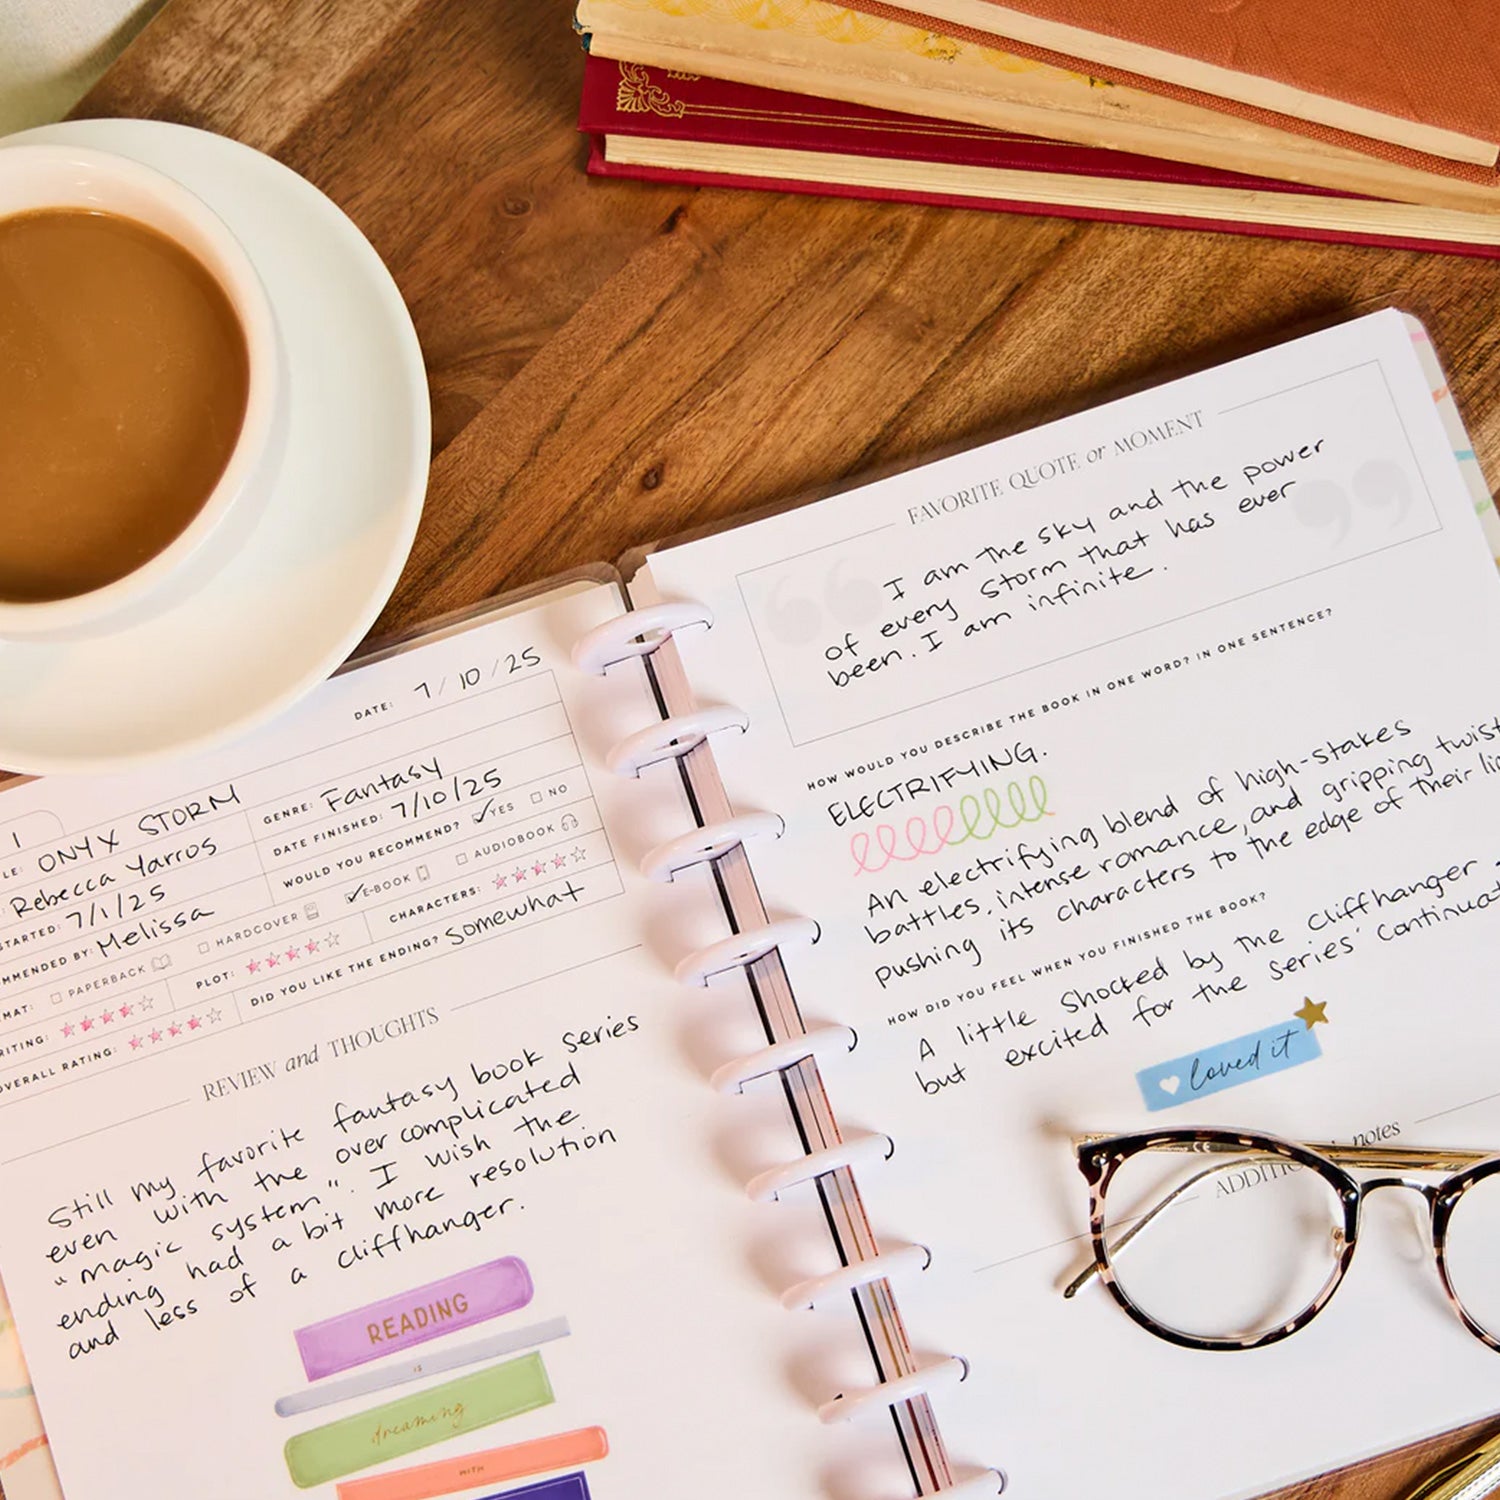 DATE: 7/10/25
1
LE: ONYX STORM
GENRE: Fantasy
: Rebecca Yarros
DATE FINISHED: 7/10/25
STARTED: 7/1/25
WOULD YOU RECOMMEND? YES NO
MMENDED BY: Melissa
MAT: PAPERBACK HARDCOVER E-BOOK AUDIOBOOK
RITING: PLOT: CHARACTERS:
OVERALL RATING: DID YOU LIKE THE ENDING? somewhat
REVIEW and THOUGHTS
Still my favorite fantasy book series
even with the over complicated
"magic system". I wish the
ending had a bit more resolution
and less of a cliffhanger.
READING
IS
dreaming
WITH
FAVORITE QUOTE or MOMENT
I am the sky and the power
of every storm that has ever
been. I am infinite.
HOW WOULD YOU DESCRIBE THE BOOK IN ONE WORD? IN ONE SENTENCE?
ELECTRIFYING.
An electrifying blend of high-stakes
battles, intense romance, and gripping twist
pushing its characters to the edge of their li
HOW DID YOU FEEL WHEN YOU FINISHED THE BOOK?
A little shocked by the cliffhanger -
but excited for the series' continuat
loved it
notes